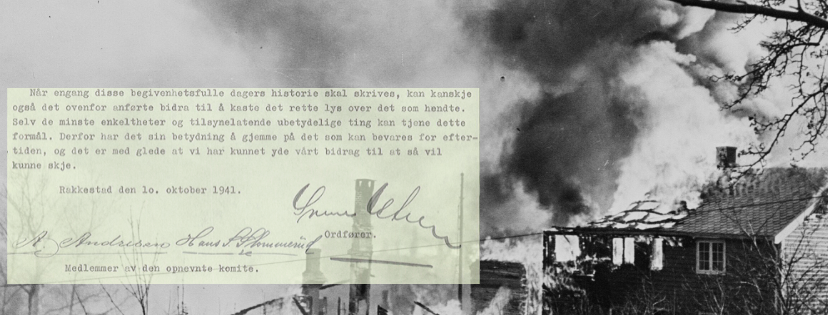 Når engang disse begivenhetsfulle dagers historie skal skrives, kan kanskje
også det ovenfor anførte bidra til å kaste det rette lys over det som hendte.
Selv de minste enkeltheter og tilsynelatende ubetydelige ting kan tjene dette
formål. Derfor har det sin betydning å gjemme på det som kan bevares for efter-
tiden, og det er med glede at vi har kunnet yde vårt bidrag til at så vil
kunne skje.
Rakkestad den 10. oktober 1941.
Ordfører.
A. Andresen Hans
Medlemmer av den opnevnte komite.